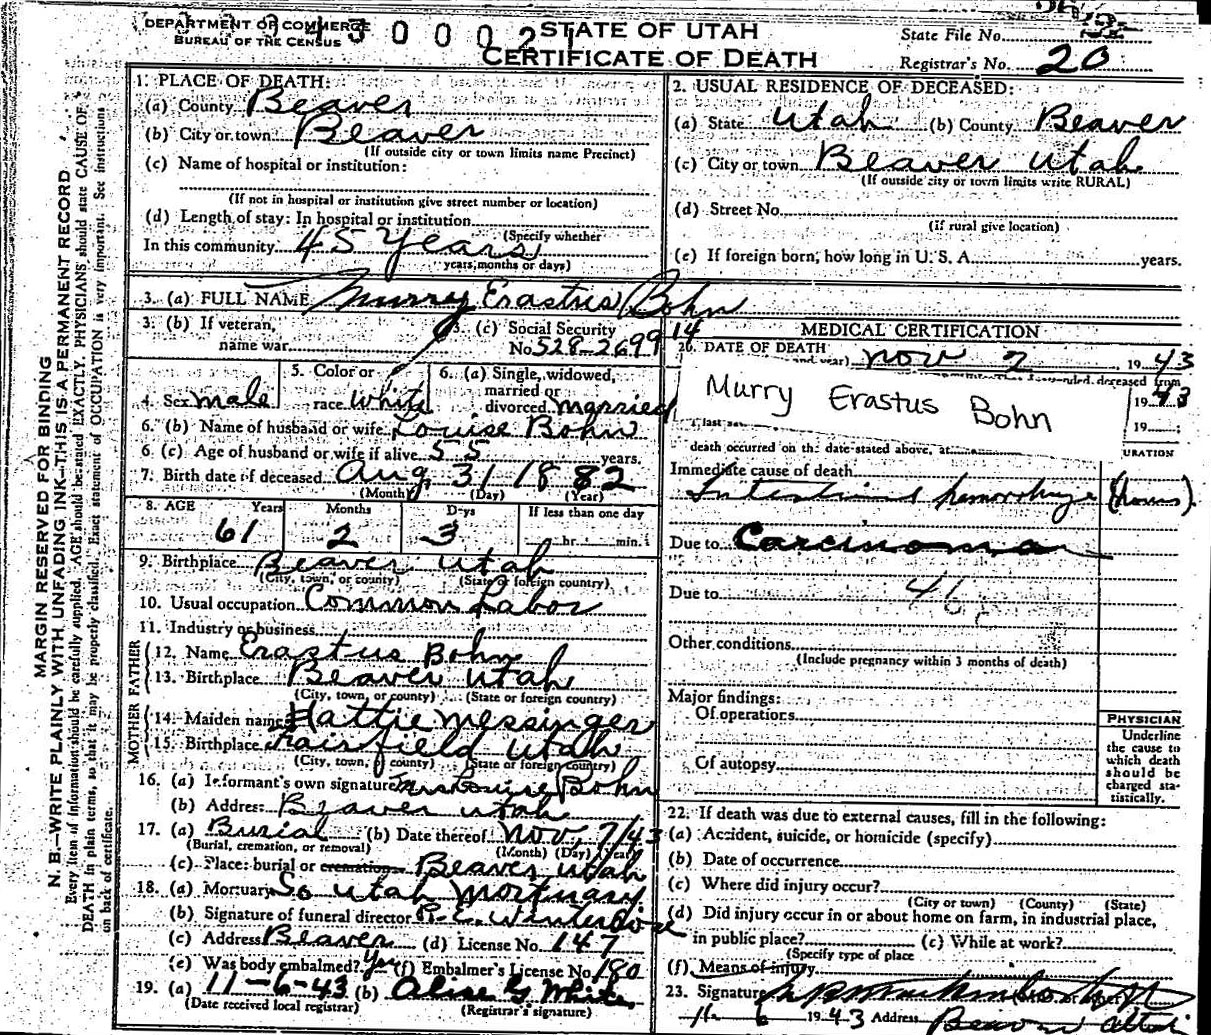 DEPARTMENT OF COMMERCE
BUREAU OF THE CENSUS
430002
STATE OF UTAH
CERTIFICATE OF DEATH
State File No.
Registrar's No. 20
MARGIN RESERVED FOR BINDING
N. B.—WRITE PLAINLY WITH UNFADING INK—THIS IS A PERMANENT RECORD.
Every item of information should be carefully supplied. AGE should be stated EXACTLY. PHYSICIANS should state CAUSE OF
DEATH in plain terms, so that it may be properly classified. Exact statement of OCCUPATION is very important. See instructions
on back of certificate.
1. PLACE OF DEATH:
(a) County Beaver
(b) City or town Beaver
(If outside city or town limits name Precinct)
(c) Name of hospital or institution:
(If not in hospital or institution give street number or location)
(d) Length of stay: In hospital or institution
(Specify whether
In this community 45 Years
years, months or days)
2. USUAL RESIDENCE OF DECEASED:
(a) State Utah (b) County Beaver
(c) City or town Beaver Utah
(If outside city or town limits write RURAL)
(d) Street No.
(If rural give location)
(e) If foreign born, how long in U. S. A. years.
3. (a) FULL NAME Murry Erastus Bohn
3. (b) If veteran,
name war
3. (c) Social Security
No. 528-26-9914
4. Sex male
5. Color or
race White
6. (a) Single, widowed,
married or
divorced married
6. (b) Name of husband or wife Louise Bohn
6. (c) Age of husband or wife if alive 55 years.
7. Birth date of deceased Aug. 31 1882
(Month) (Day) (Year)
8. AGE Years Months Days If less than one day
61 2 3 hr. min.
9. Birthplace Beaver Utah
(City, town, or county) (State or foreign country)
10. Usual occupation Common Labor
11. Industry or business
FATHER
12. Name Erastus Bohn
13. Birthplace Beaver Utah
(City, town, or county) (State or foreign country)
MOTHER
14. Maiden name Hattie Messinger
15. Birthplace Fairfield Utah
(City, town, or county) (State or foreign country)
16. (a) Informant's own signature Mrs Louise Bohn
(b) Address Beaver Utah
17. (a) Burial (b) Date thereof Nov. 7/43
(Burial, cremation, or removal) (Month) (Day) (Year)
(c) Place: burial or cremation Beaver Utah
18. (a) Mortuary So Utah Mortuary
(b) Signature of funeral director R. E.
(c) Address Beaver (d) License No. 147
(e) Was body embalmed? Yes (f) Embalmer's License No. 180
19. (a) 11-6-43 (b) Alise G White
(Date received local registrar) (Registrar's signature)
MEDICAL CERTIFICATION
20. DATE OF DEATH
and year) Nov 2, 1943
attended deceased from
Murry Erastus Bohn
1943
19
death occurred on the date stated above, at
DURATION
Immediate cause of death
Intestinal hemorrhage (hours)
Due to Carcinoma
Due to 46
Other conditions
(Include pregnancy within 3 months of death)
Major findings:
Of operations
Of autopsy
PHYSICIAN
Underline
the cause to
which death
should be
charged sta-
tistically.
22. If death was due to external causes, fill in the following:
(a) Accident, suicide, or homicide (specify)
(b) Date of occurrence
(c) Where did injury occur?
(City or town) (County) (State)
(d) Did injury occur in or about home on farm, in industrial place,
in public place? (e) While at work?
(Specify type of place
(f) Means of injury
23. Signature
11-6 1943 Address Beaver Utah